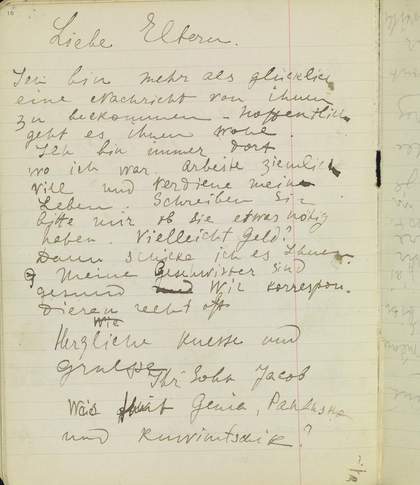 Liebe Eltern.
Ich bin mehr als glücklich
eine Nachricht von ihnen
zu bekommen – Hoffentlich
geht es ihnen wohl.
Ich bin immer dort
wo ich war. Arbeite ziemlich
vill und verdiene meine
Leben. Schreiben Sie
bitte mir ob sie etwas nötig
haben. Vielleicht Geld?
Dann schicke ich es Ihnen
Meine Geschwister sind
gesund und Wir korrespon-
dieren recht oft
Wie
Herzliche Kuesse und
Gruesse
Ihr Sohn Jacob
Was Genia,
und